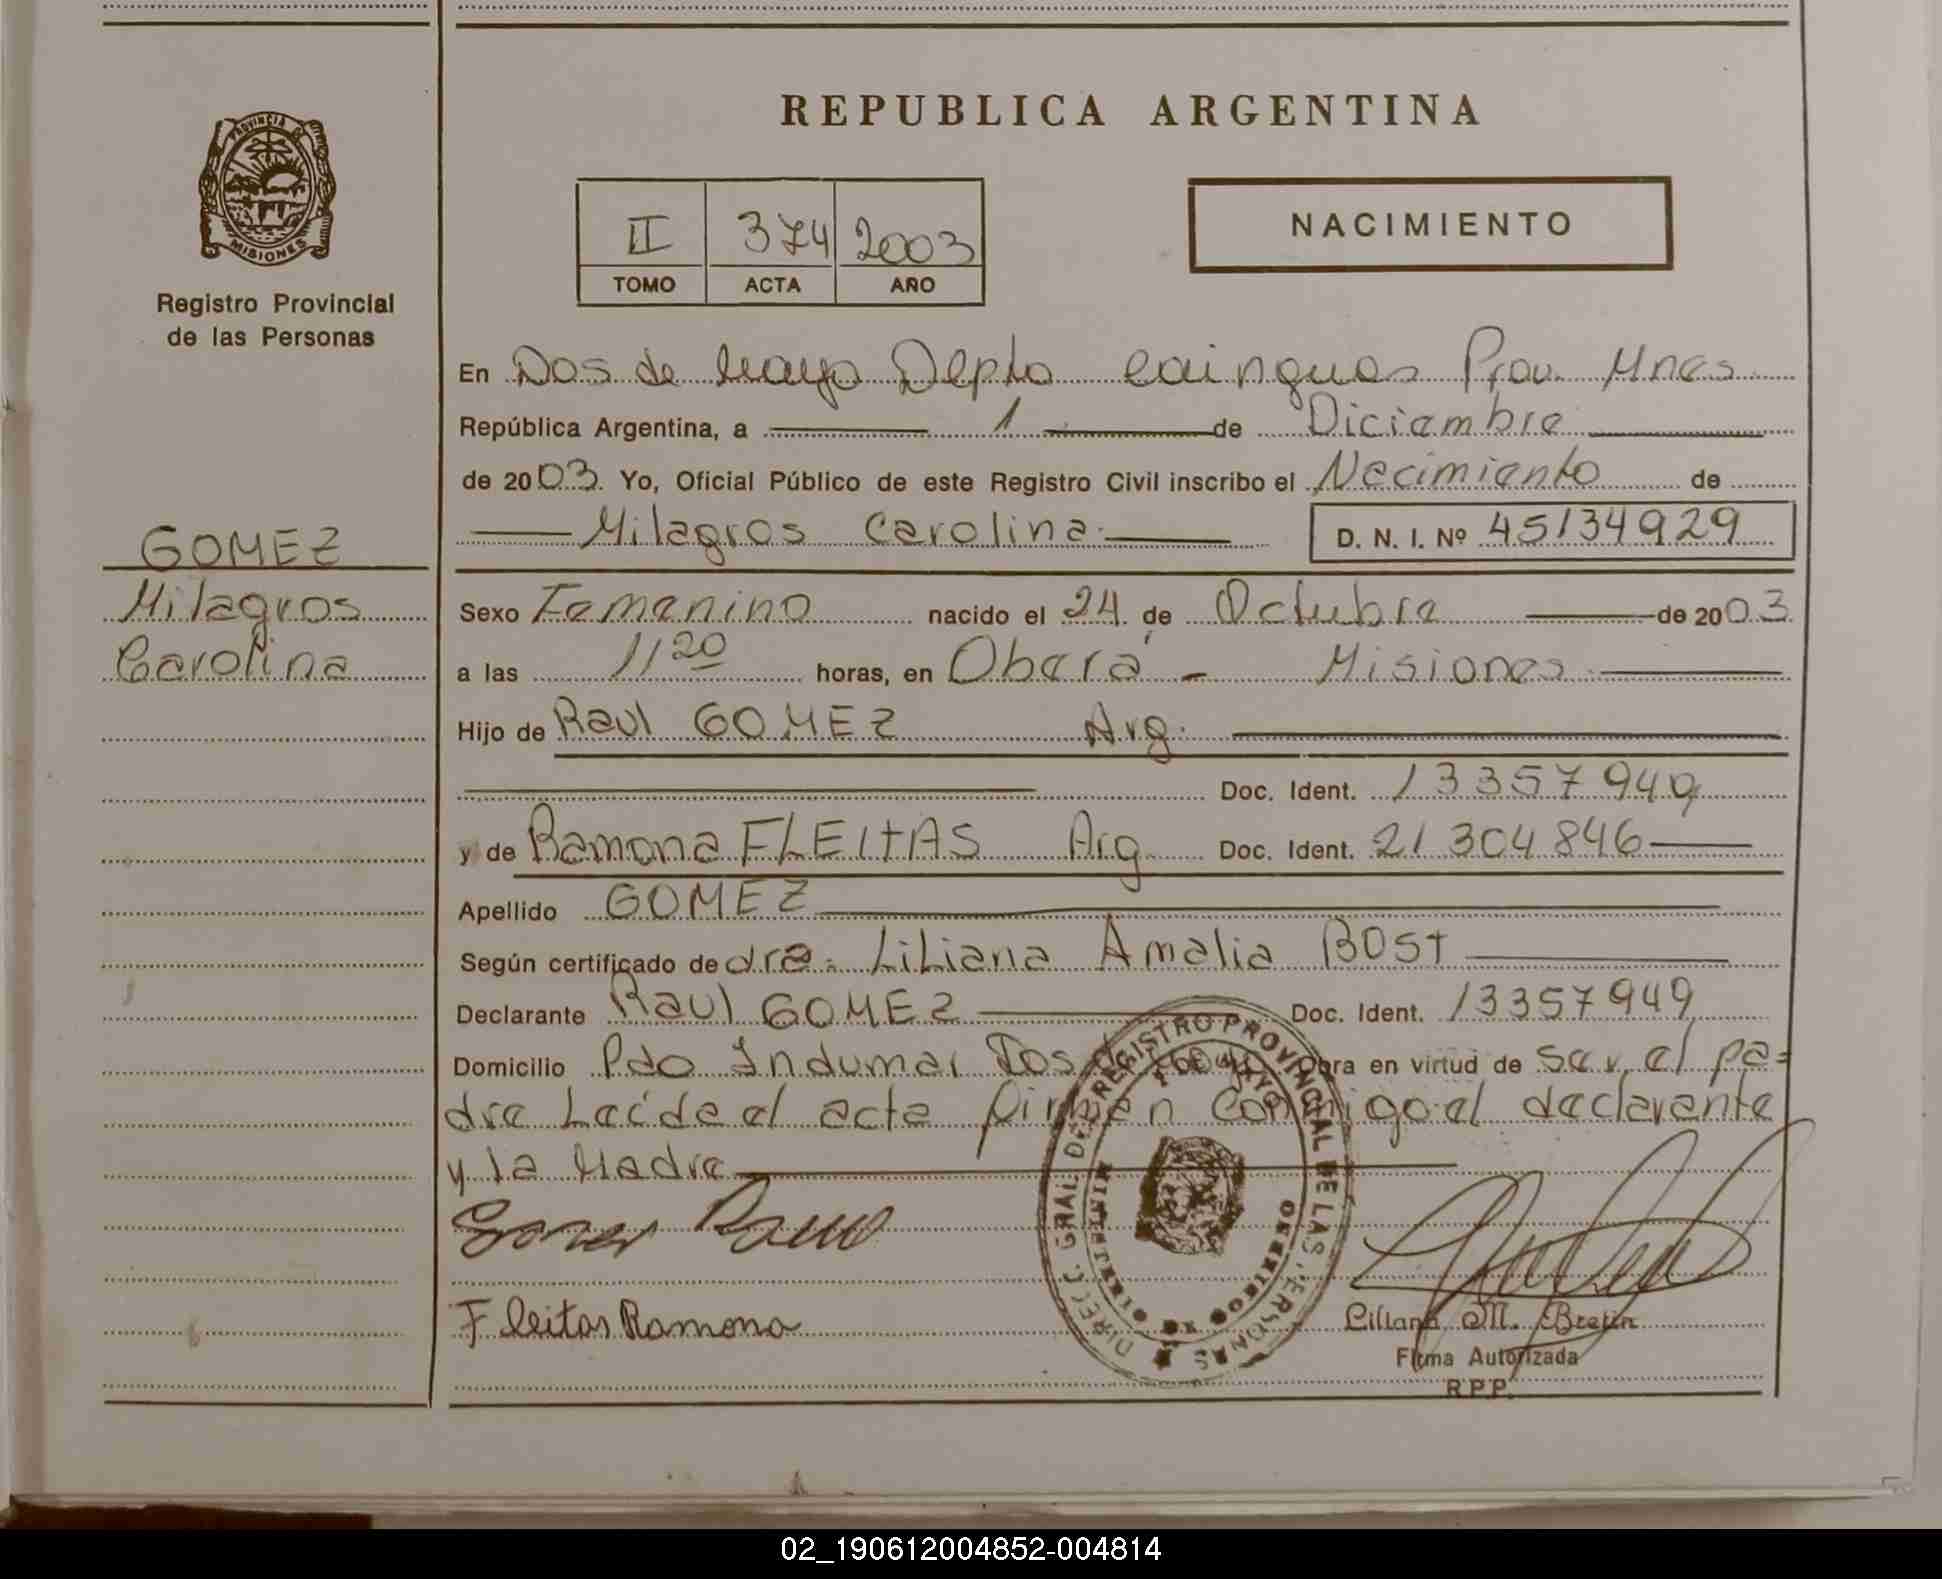 REPUBLICA ARGENTINA
PROVINCIA DE
MISIONES
Registro Provincial
de las Personas
II 374 2003
TOMO ACTA AÑO
NACIMIENTO
En Dos de Mayo Depto Cainguas Prov. Mnes
República Argentina, a 1 de Diciembre
de 2003. Yo, Oficial Público de este Registro Civil inscribo el Nacimiento de
Milagros Carolina D. N. I. Nº 45134929
GOMEZ
Milagros
Carolina
Sexo Femenino nacido el 24 de Octubre de 2003
a las 11 20 horas, en Oberá - Misiones
Hijo de Raul GOMEZ Arg.
Doc. Ident. 13357949
y de Ramona FLEITAS Arg Doc. Ident. 21304846
Apellido GOMEZ
Según certificado de dra. Liliana Amalia BOST
Declarante Raul GOMEZ Doc. Ident. 13357949
Domicilio Pdo Indumar Dos de Mayo Obra en virtud de ser el pa=
dre Leída el acta firman conmigo el declarante
y la Madre
Gomez Raul
Fleitas Ramona
DIREC. GRAL. DEL REGISTRO PROVINCIAL DE LAS PERSONAS
2 DE MAYO
MINISTERIO DE GOBIERNO
Liliana M. Bretin
Firma Autorizada
R.P.P.
02_190612004852-004814